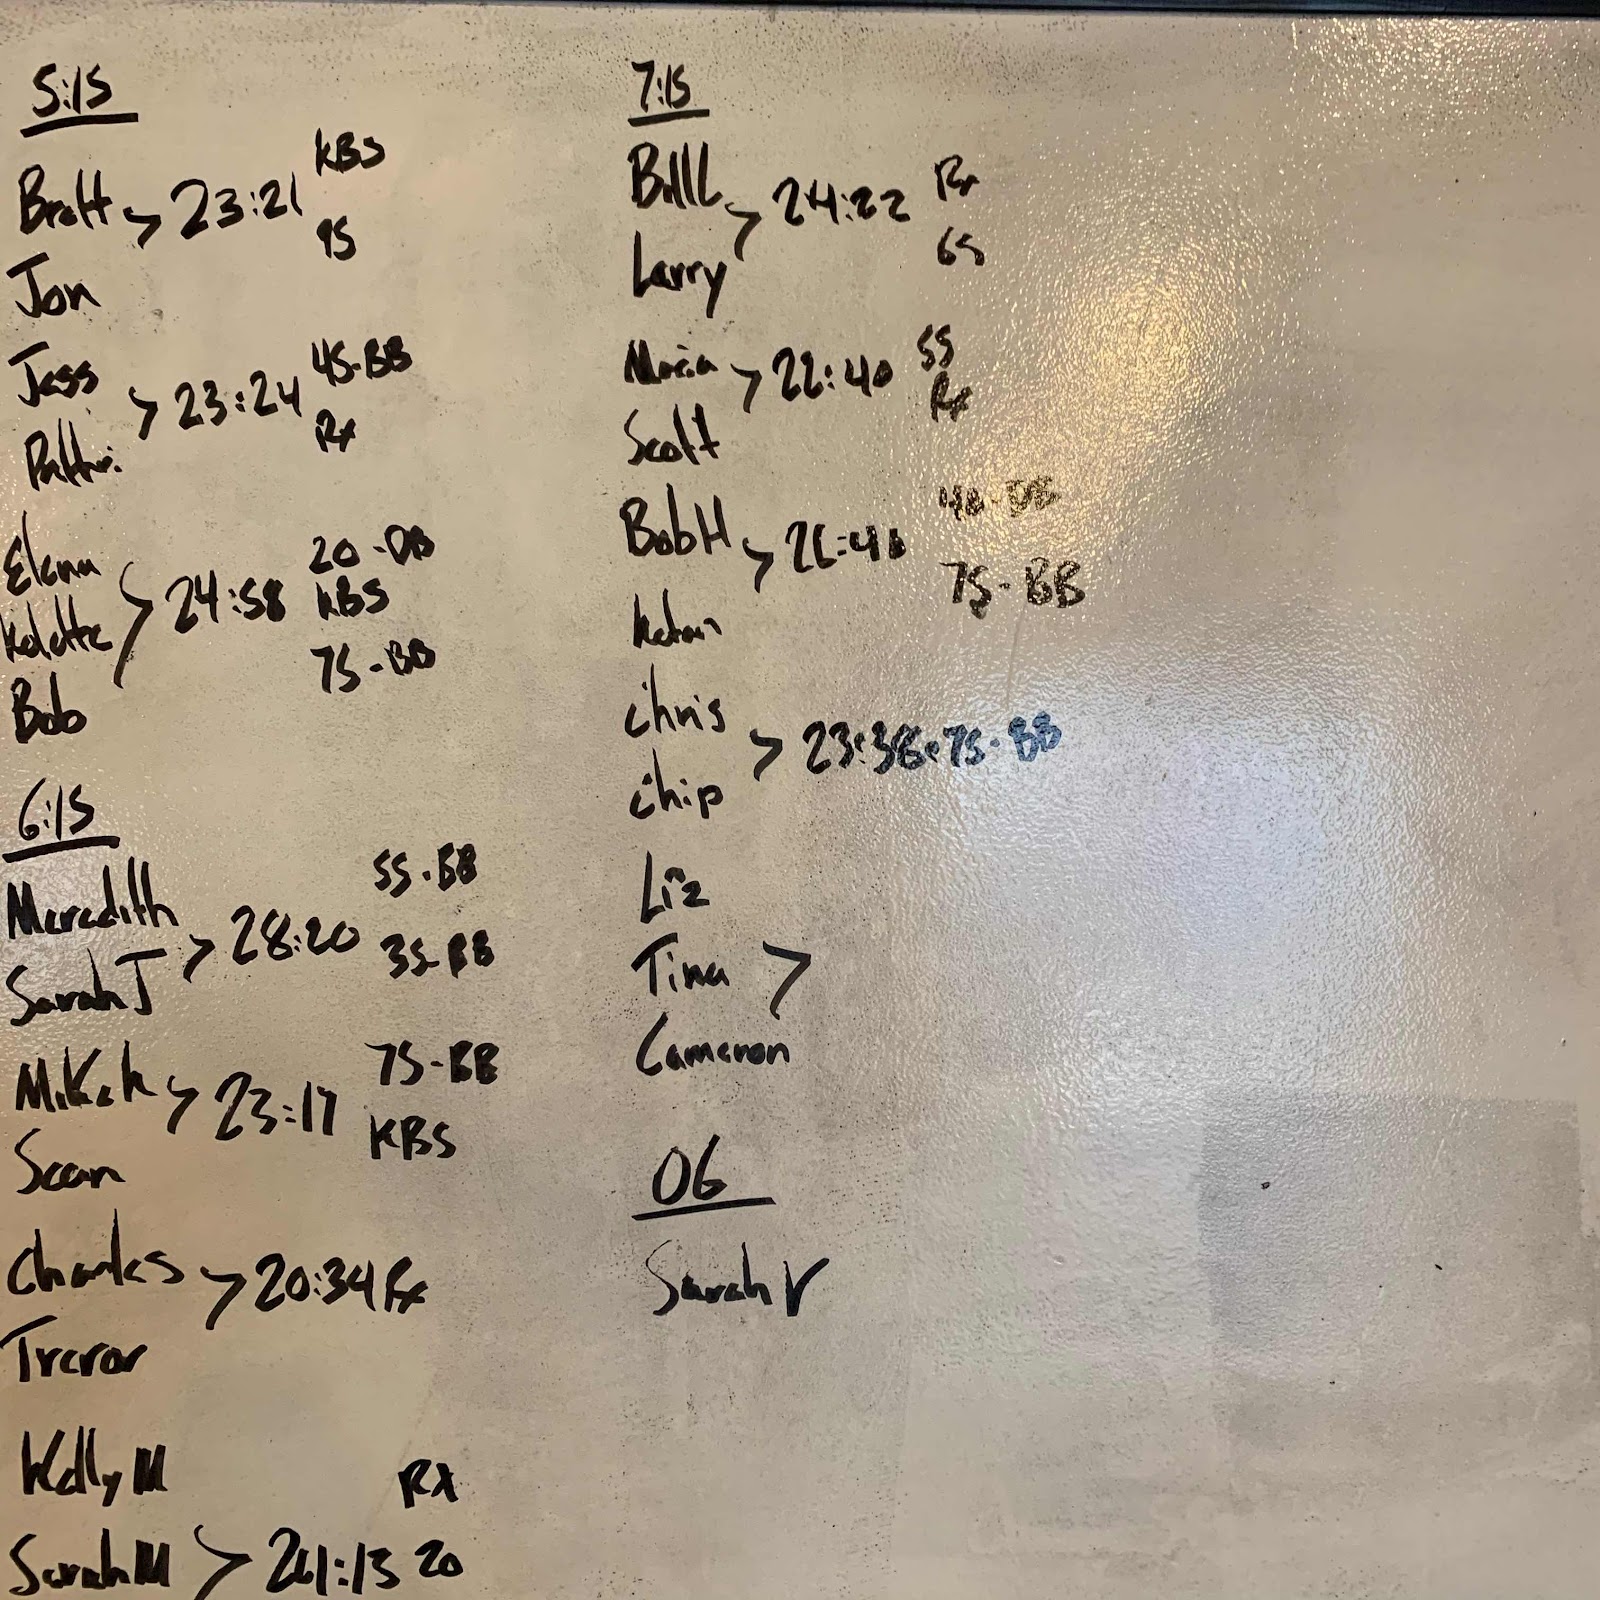 5:15
Brett > 23:21 KBS
95
Jon
Jess
> 23:24 45-BB
Rx
Patti
Elena 20-DB
> 24:58 KBS
Bob 75-BB
6:15
Meredith 55-BB
> 28:20
Sarah J 35-BB
MiKah > 23:17 75-BB
KBS
Sean
Charles > 20:34 Rx
Trevor
Kelly M Rx
Sarah M > 13 20
7:15
Bill L > 24:22 Rx
65
Larry
Maria > 22:40 55
Rx
Scott
Bob H >
75-BB
Ketan
Chris
> 23:38 75-BB
Chip
Liz
Tina >
Cameron
OG
Sarah V